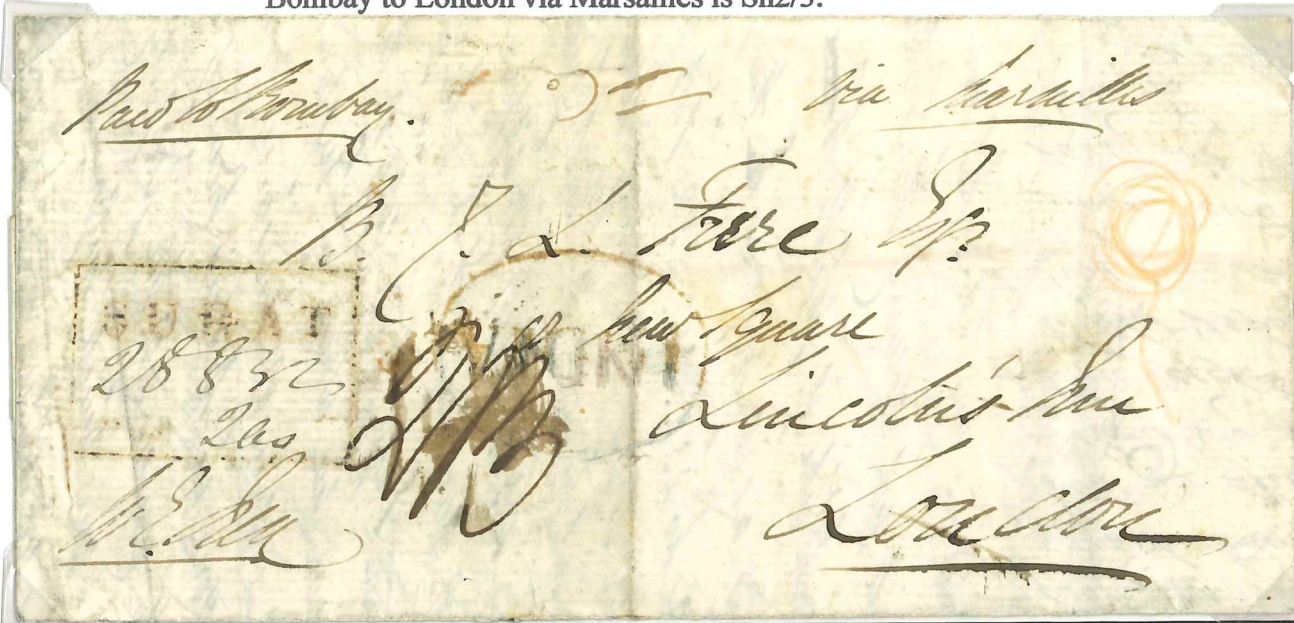 Bombay to London via Marsailles is Sh2/5.
Paid to Bombay. via Marseilles
B. J. L. Frere Esqr.
9 New Square
Lincoln's Inn
London
INDIA
SURAT
28 8 52
2as
2/5